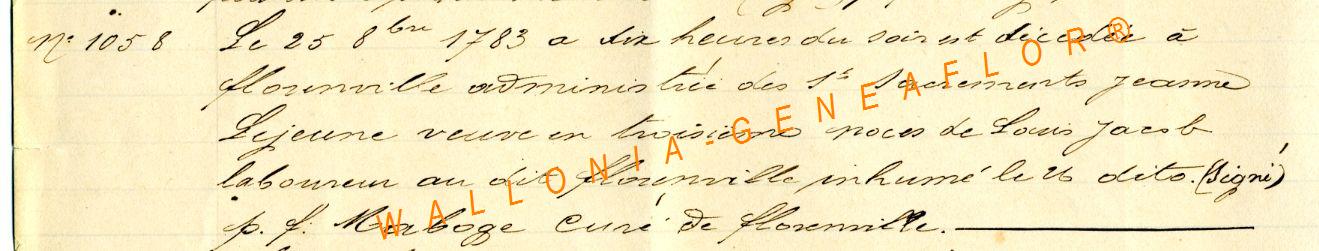 N° 1058 Le 25 8bre 1783 a dix heures du soir est décédée à
florenville administrée des Sts Sacrements Jeanne
Lejeune veuve en troisieme noces de Louis Jacob
laboureur au dit florenville inhumé le 26 dito. (Signé)
p. f. curé de florenville.
WALLONIA-GENEAFLOR®